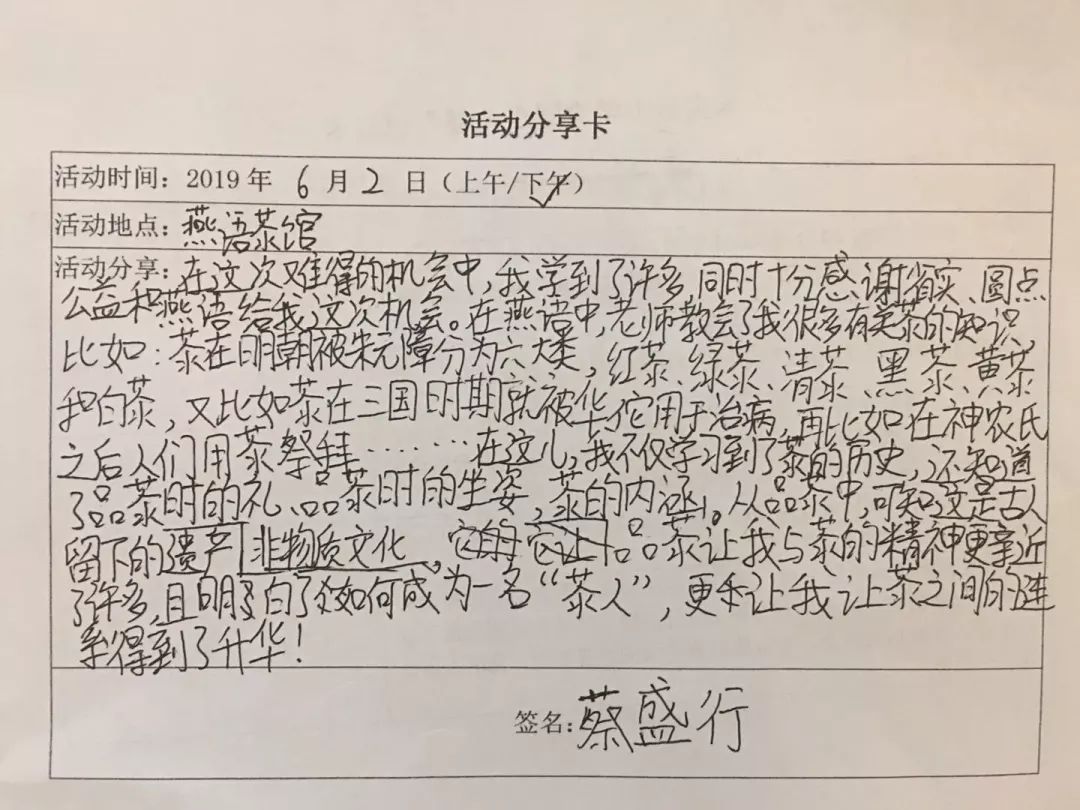 活动分享卡
活动时间：2019年 6 月 2 日（上午/下午）
活动地点：燕语茶馆
活动分享：在这次难得的机会中，我学到了许多，同时十分感谢省实、圆点
公益和燕语给我这次机会。在燕语中，老师教会了我很多有关茶的知识，
比如：茶在明朝被朱元障分为六大类，红茶、绿茶、清茶、黑茶、黄茶
和白茶，又比如茶在三国时期就被华佗用于治病，再比如在神农氏
之后人们用茶祭拜………在这儿，我不仅学习到了茶的历史，还知道
了品茶时的礼、品茶时的坐姿，茶的内涵。从品茶中，可知这是古人
留下的遗产非物质文化，品茶让我与茶的精神更亲近
了许多，且明白了如何成为一名“茶人”，更让我让茶之间的链
系得到了升华！
签名：蔡盛行